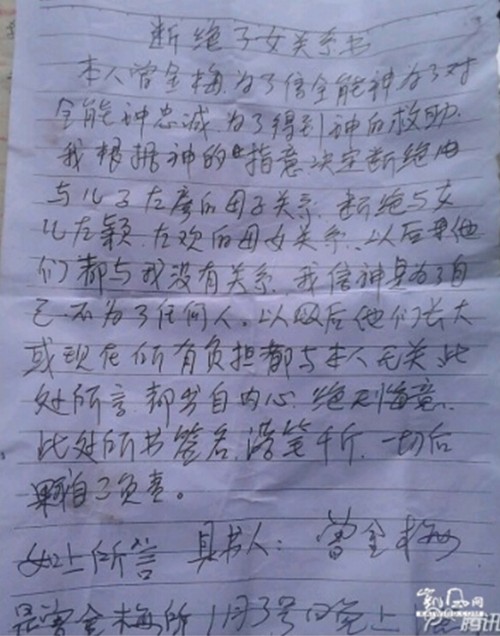 断绝子女关系书
本人曾金梅,为了信全能神为了对
全能神忠诚,为了得到神的救助.
我根据神的"指意决定断绝由
与儿子左彦的母子关系.断绝与女
儿左颖.左欢的母女关系.以后
们都与我没有关系.我信神是为了自
己.不为了任何人。以后他们长大
或现在所有负担都与本人无关.此
处所言.都书自内心.绝无悔意.
此处所书签名,落笔千斤.一切后
果自己负责。
如上所言 具书人:曾金梅
是曾金梅所 11月3号晚上
凯风网
腾讯